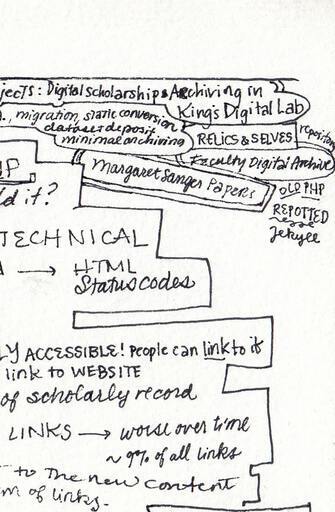 jects: Digital scholarship & Archiving in
King's Digital Lab
migration, static conversion
dataset deposit
minimal archiving
RELICS & SELVES
Faculty Digital Archive
Margaret Sanger Papers
OLD PHP
REPOTTED
Jekyll
d it?
TECHNICAL
→ HTML
Status codes
LY ACCESSIBLE! People can link to it
link to WEBSITE
of scholarly record
LINKS → worse over time
~ 9% of all links
to the new content
m of links.